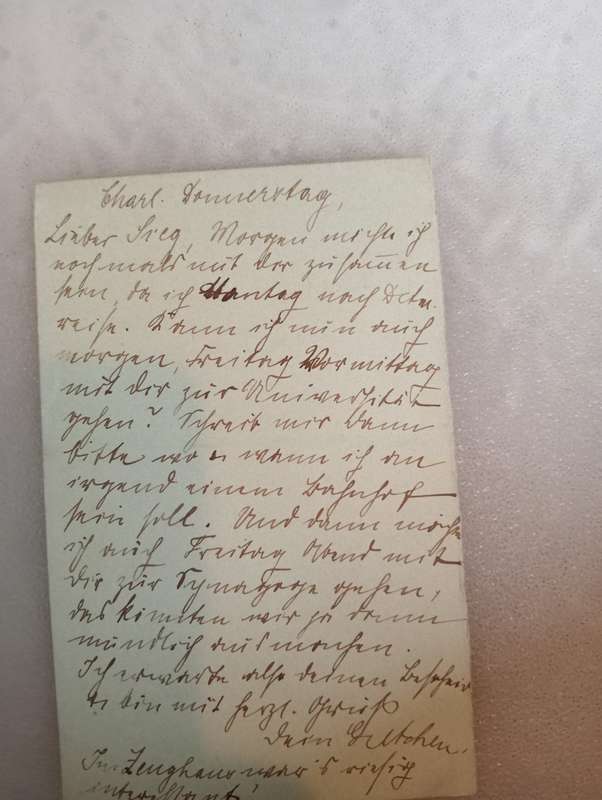 Charl. Donnerstag,
Lieber Sieg, Morgen möchte ich
nochmals mit dir zusammen
sein, da ich Montag nach
reise. Kann ich nun auch
morgen, Freitag Vormittag
mit dir zur Universität
gehen? Schreib mir dann
bitte wo u wann ich an
irgend einem Bahnhof
sein soll. Und dann möchte
ich auch Freitag Abend mit
dir zur Synagoge gehen,
das könnten wir ja dann
mündlich ausmachen.
Ich erwarte also deinen Bescheid
u bin mit herzl. Gruß
Dein
Im Zeughaus war's riesig
interessant!